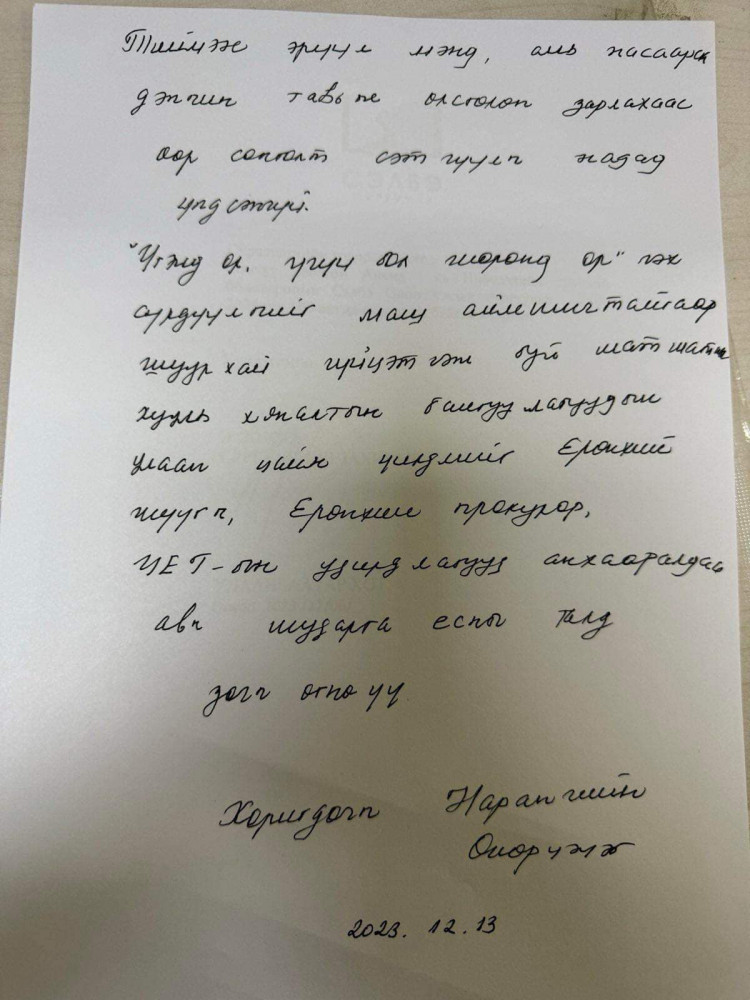 Тиймээс эрүүл мэнд, амь насаараа
дэнчин тавьж өлсгөлөн зарлахаас
өөр сонголт сэтгүүлч надад
үлдсэнгүй.
"Үгэнд ор, үгүй бол шоронд ор" гэх
сүрдүүлгийг маш аймшигтайгаар
шуурхай гүйцэтгэж буй шат шатны
хууль хяналтын байгууллагуудын
улаан цайм үйлдлийг Ерөнхий
шүүгч, Ерөнхий прокурор,
ЦЕГ-ын удирдлагууд анхааралдаа
авч шударга ёсны талд
зогсч өгнө үү
Хоригдогч Нарангийн
Өнөрцэцэг
2023. 12. 13